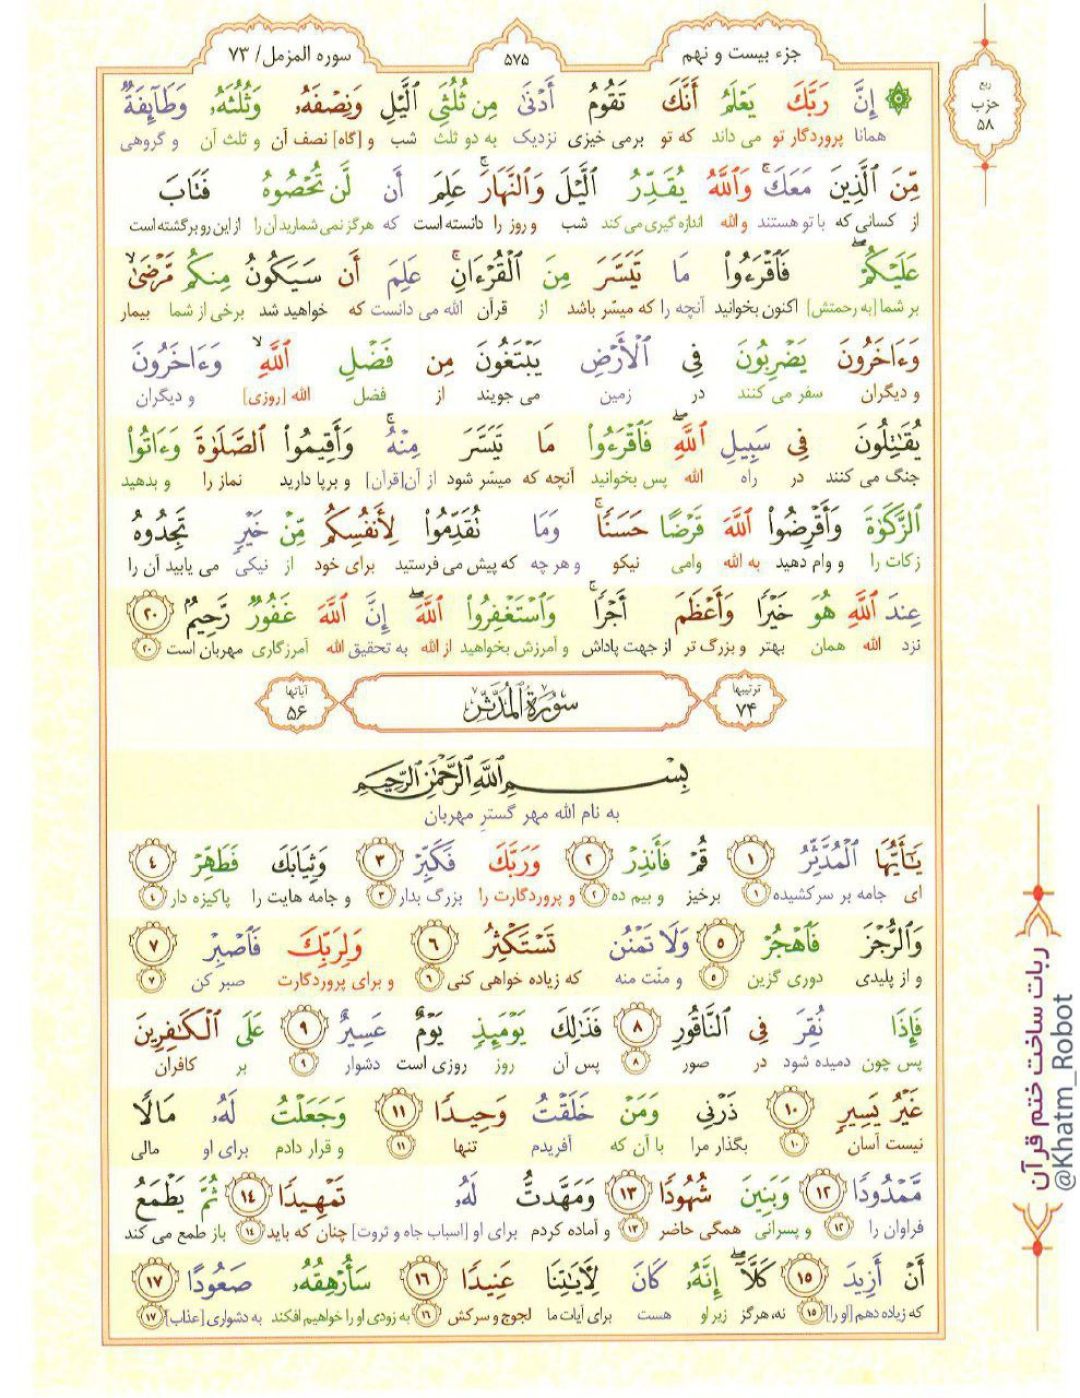 جزء بیست و نهم
۵۷۵
سوره المزمل/ ۷۳
ربع
حزب
۵۸
۞ إِنَّ رَبَّكَ يَعْلَمُ أَنَّكَ تَقُومُ أَدْنَىٰ مِن ثُلُثَىِ ٱلَّيْلِ وَنِصْفَهُۥ وَثُلُثَهُۥ وَطَآئِفَةٌ
همانا پروردگار تو می داند که تو برمی خیزی نزدیک به دو ثلث شب و [گاه] نصف آن و ثلث آن و گروهی
مِّنَ ٱلَّذِينَ مَعَكَ ۚ وَٱللَّهُ يُقَدِّرُ ٱلَّيْلَ وَٱلنَّهَارَ ۚ عَلِمَ أَن لَّن تُحْصُوهُ فَتَابَ
از کسانی که با تو هستند و الله اندازه گیری می کند شب و روز را دانسته است که هرگز نمی شمارید آن را از این رو برگشته است
عَلَيْكُمْ ۖ فَٱقْرَءُوا۟ مَا تَيَسَّرَ مِنَ ٱلْقُرْءَانِ ۚ عَلِمَ أَن سَيَكُونُ مِنكُم مَّرْضَىٰ ۙ
بر شما [به رحمتش] اکنون بخوانید آنچه را که میسّر باشد از قرآن الله می دانست که خواهید شد برخی از شما بیمار
وَءَاخَرُونَ يَضْرِبُونَ فِى ٱلْأَرْضِ يَبْتَغُونَ مِن فَضْلِ ٱللَّهِ ۙ وَءَاخَرُونَ
و دیگران سفر می کنند در زمین می جویند از فضل الله [روزی] و دیگران
يُقَـٰتِلُونَ فِى سَبِيلِ ٱللَّهِ ۖ فَٱقْرَءُوا۟ مَا تَيَسَّرَ مِنْهُ ۚ وَأَقِيمُوا۟ ٱلصَّلَوٰةَ وَءَاتُوا۟
جنگ می کنند در راه الله پس بخوانید آنچه که میسّر شود از آن[قرآن] و برپا دارید نماز را و بدهید
ٱلزَّكَوٰةَ وَأَقْرِضُوا۟ ٱللَّهَ قَرْضًا حَسَنًا ۚ وَمَا تُقَدِّمُوا۟ لِأَنفُسِكُم مِّنْ خَيْرٍ تَجِدُوهُ
زکات را و وام دهید به الله وامی نیکو و هر چه که پیش می فرستید برای خود از نیکی می یابید آن را
عِندَ ٱللَّهِ هُوَ خَيْرًا وَأَعْظَمَ أَجْرًا ۚ وَٱسْتَغْفِرُوا۟ ٱللَّهَ ۖ إِنَّ ٱللَّهَ غَفُورٌ رَّحِيمٌۢ ۲۰
نزد الله همان بهتر و بزرگ تر از جهت پاداش و آمرزش بخواهید از الله به تحقیق الله آمرزگاری مهربان است ۲۰
ترتیبها
۷۴
سُورَةُ ٱلْمُدَّثِّر
آیاتها
۵۶
بِسْمِ ٱللَّهِ ٱلرَّحْمَـٰنِ ٱلرَّحِيمِ
به نام الله مهر گسترِ مهربان
يَـٰٓأَيُّهَا ٱلْمُدَّثِّرُ ۱ قُمْ فَأَنذِرْ ۲ وَرَبَّكَ فَكَبِّرْ ۳ وَثِيَابَكَ فَطَهِّرْ ۴
ای جامه بر سر کشیده ۱ برخیز و بیم ده ۲ و پروردگارت را بزرگ بدار ۳ و جامه هایت را پاکیزه دار ۴
وَٱلرُّجْزَ فَٱهْجُرْ ۵ وَلَا تَمْنُن تَسْتَكْثِرُ ۶ وَلِرَبِّكَ فَٱصْبِرْ ۷
و از پلیدی دوری گزین ۵ و منّت منه که زیاده خواهی کنی ۶ و برای پروردگارت صبر کن ۷
فَإِذَا نُقِرَ فِى ٱلنَّاقُورِ ۸ فَذَٰلِكَ يَوْمَئِذٍ يَوْمٌ عَسِيرٌ ۹ عَلَى ٱلْكَـٰفِرِينَ
پس چون دمیده شود در صور ۸ پس آن روز روزی است دشوار ۹ بر کافران
غَيْرُ يَسِيرٍ ۱۰ ذَرْنِى وَمَنْ خَلَقْتُ وَحِيدًا ۱۱ وَجَعَلْتُ لَهُۥ مَالًا
نیست آسان ۱۰ بگذار مرا با آن که آفریدم تنها ۱۱ و قرار دادم برای او مالی
مَّمْدُودًا ۱۲ وَبَنِينَ شُهُودًا ۱۳ وَمَهَّدتُّ لَهُۥ تَمْهِيدًا ۱۴ ثُمَّ يَطْمَعُ
فراوان را ۱۲ و پسرانی همگی حاضر ۱۳ و آماده کردم برای او [اسباب جاه و ثروت] چنان که باید ۱۴ باز طمع می کند
أَنْ أَزِيدَ ۱۵ كَلَّآ ۖ إِنَّهُۥ كَانَ لِـَٔايَـٰتِنَا عَنِيدًا ۱۶ سَأُرْهِقُهُۥ صَعُودًا ۱۷
که زیاده دهم [او را] ۱۵ نه، هرگز زیر او هست برای آیات ما لجوج و سرکش ۱۶ به زودی او را خواهیم افکند به دشواری [عذاب] ۱۷
ربات ساخت ختم قرآن
@Khatm_Robot